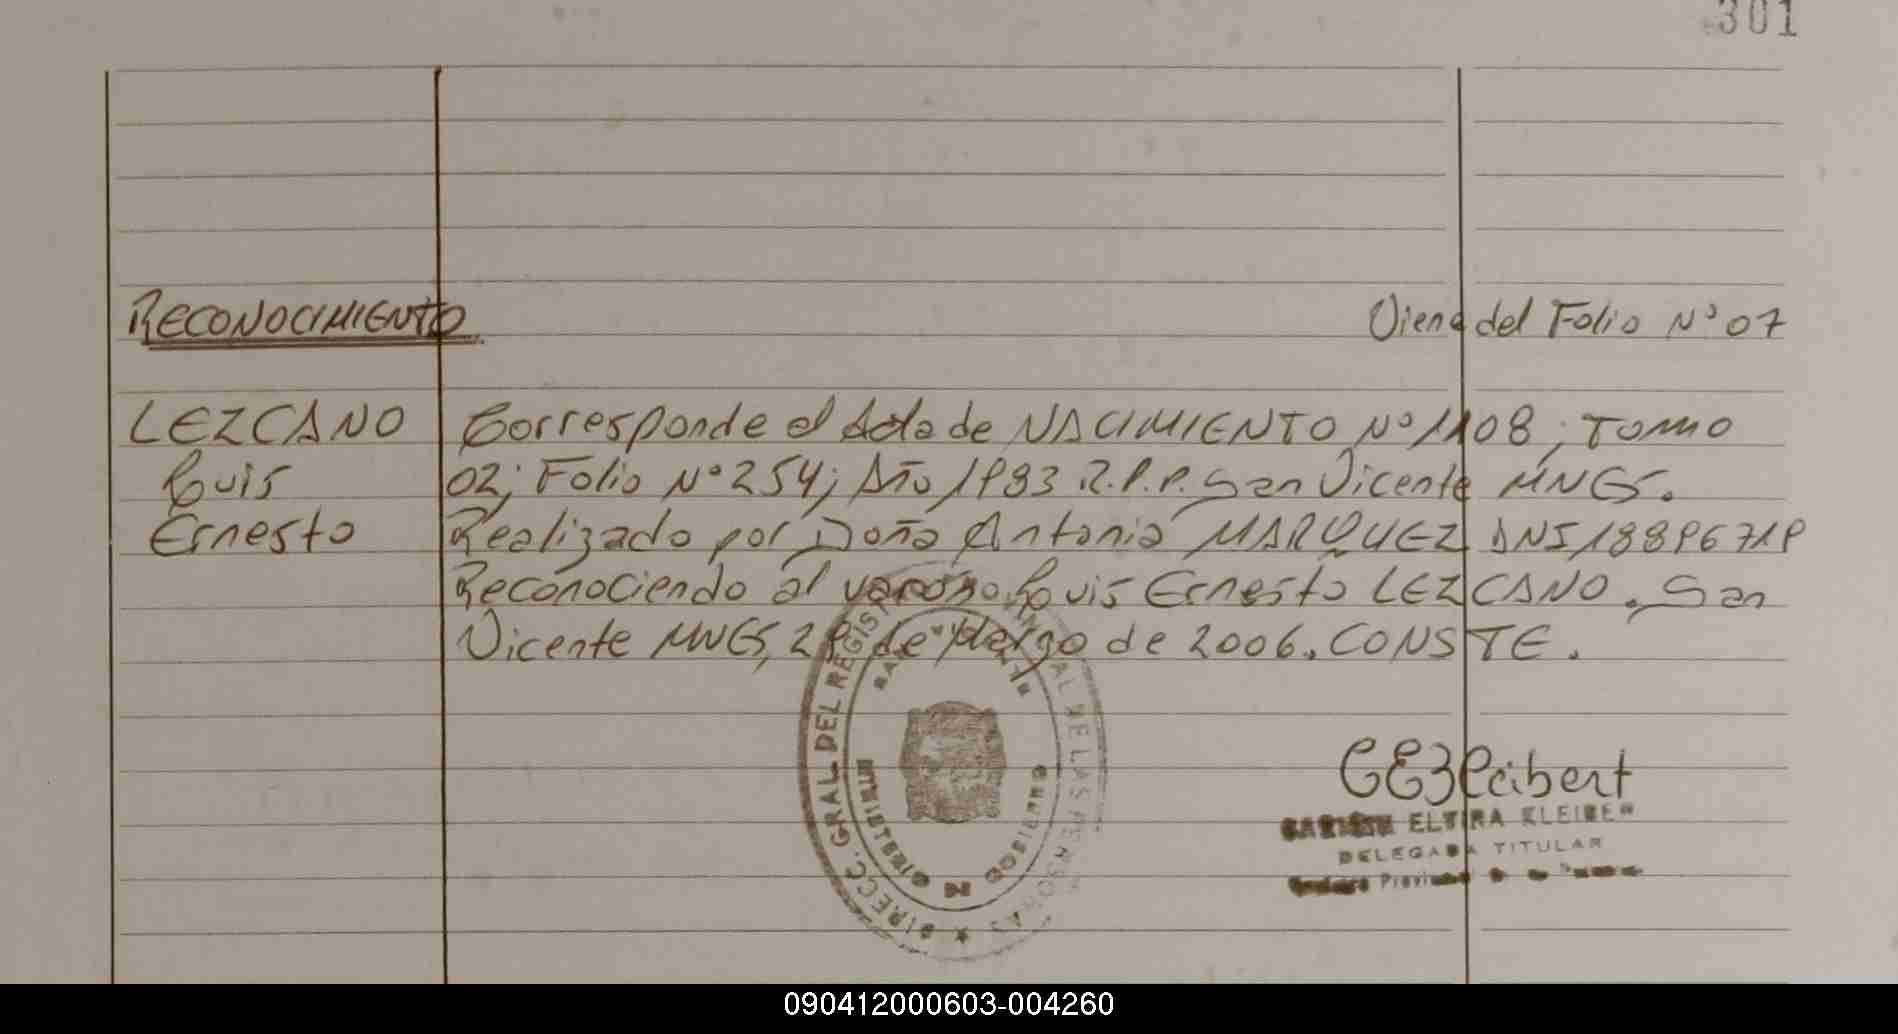 301
RECONOCIMIENTO
Viene del Folio Nº 07
LEZCANO Corresponde al Acta de NACIMIENTO Nº 1108; TOMO
Luis 02; Folio Nº 254; Año 1993 R.P.P. San Vicente MNES.
Ernesto Realizado por Doña Antonia MARQUEZ DNI 18896719
Reconociendo al varon Luis Ernesto LEZCANO. San
Vicente MNES, 29 de Marzo de 2006. CONSTE.
DIRECC. GRAL. DEL REGISTRO PROVINCIAL DE LAS PERSONAS
MINISTERIO DE GOBIERNO
ELVIRA KLEIBER
DELEGADA TITULAR
090412000603-004260